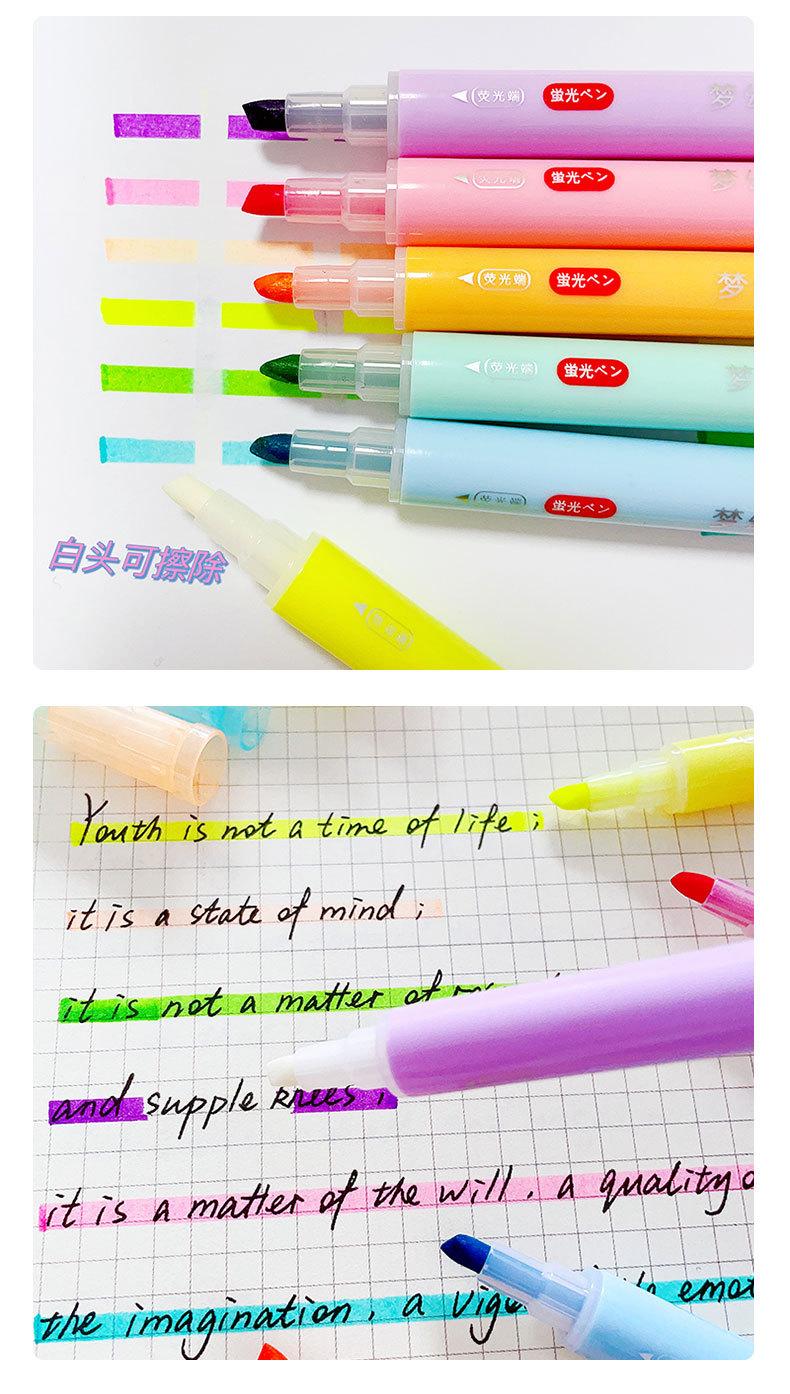 荧光端 蛍光ペン 梦
蛍光ペン
荧光端 蛍光ペン 梦
荧光端 蛍光ペン 梦
荧光端 蛍光ペン 梦
白头可擦除
荧光端
Youth is not a time of life ;
it is a state of mind ;
it is not a matter of
and supple knees ;
it is a matter of the will . a quality
the imagination , a emot